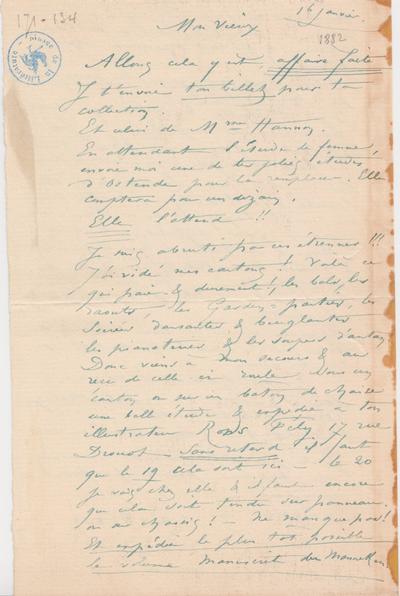 171-134
16 janvier.
1882
Mon Vieux
Musée de la Littérature
Allons cela y est, affaire faite
Je t'envoie ton billet pour ta
collection.
Et celui de Mme Hannon.
En attendant l'étude de femme,
envoie moi une de tes jolies études
d'Ostende pour la remplacer. Elle
comptera pour un dizain.
Elle l'attend !!
Je suis abruti par ces étrennes !!!
J'ai vidé mes cartons ! Voilà ce
que & devenert, les bals, les
raouts, les Gardes-parties, les
soirées dansantes & beuglantes
les pianoteries & les soupers d'antan
Donc viens à mon secours & au
reçu de celle-ci roule sous un
carton ou sur un baton de chaise
une belle étude & expédie à ton
illustrateur Rops Fély 17 rue
Drouot - sans retard il faut
que le 19 cela soit ici - le 20
je vais chez elle & il faut encore
que cela soit tendu sur panneau
ou au chassis ! - ne manque pas !
Et expédie le plus tot possible
le volume manuscrit des Mannekens